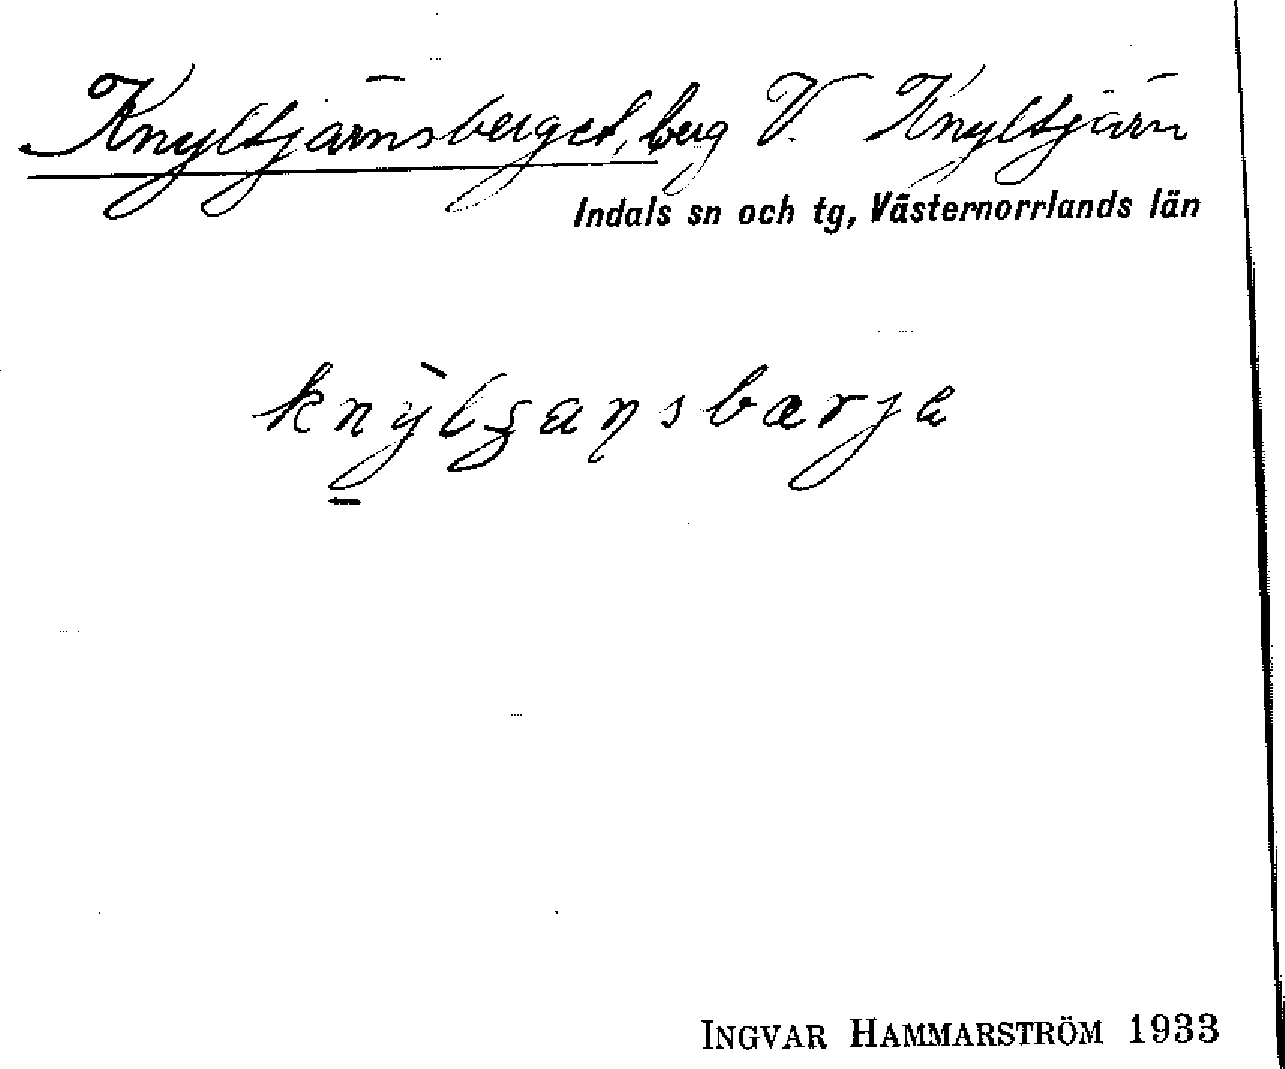 Knyltjärnsberget, berg V. Knyltjärn
Indals sn och tg, Västernorrlands län
INGVAR HAMMARSTRÖM 1933